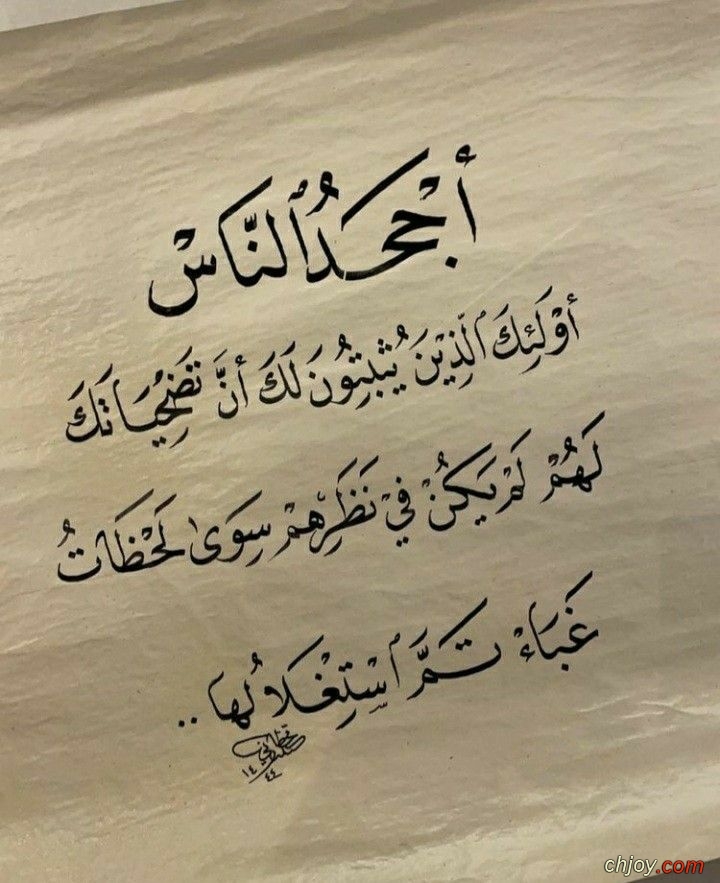 أَجْحَدُ ٱلنَّاسْ
أوْلَئِكَ ٱلَّذِينَ يُثْبِتُونَ لَكَ أنَّ تَضْحِيَاتَكَ
لَهُمْ لَمْ يَكُنْ فِيْ نَظَرِهِمْ سِوَى لَحْظَاتُ
غَبَاءْ تَمَّ ٱسْتِغْلَالُهَا ..
١٤
٤٤
chjoy.com